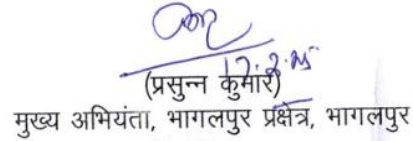 17.2.25
(प्रसुन्न कुमार)
मुख्य अभियंता, भागलपुर प्रक्षेत्र, भागलपुर